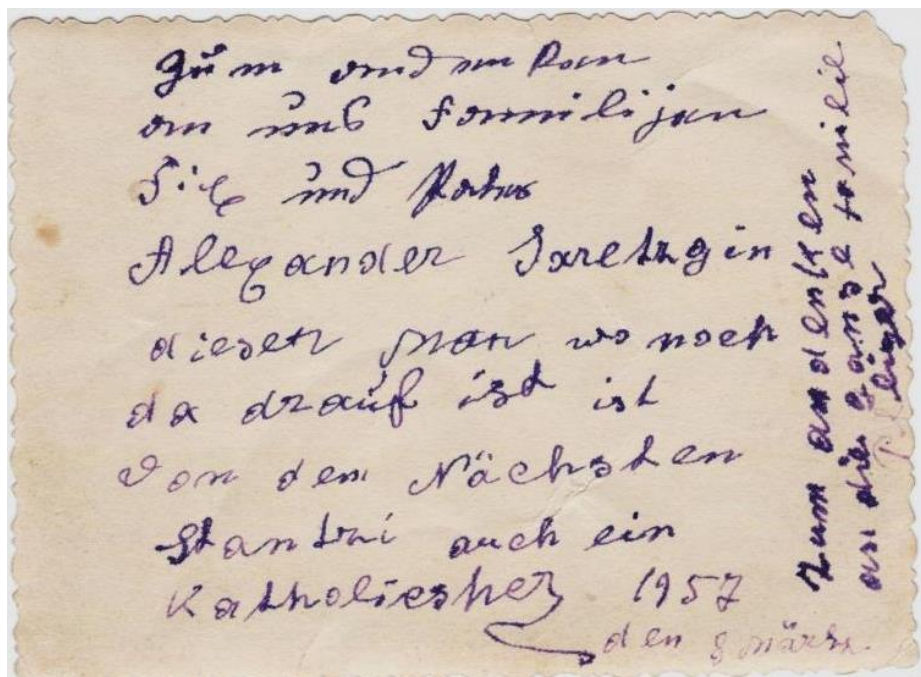 Zum andenken
an uns Familijen
Fix und
Alexander
diesen Man wo noch
da drauf ist ist
Von dem Nächsten
auch ein
Katholiescher 1957
den 8 März.
Zum andenken
an die ganze familie